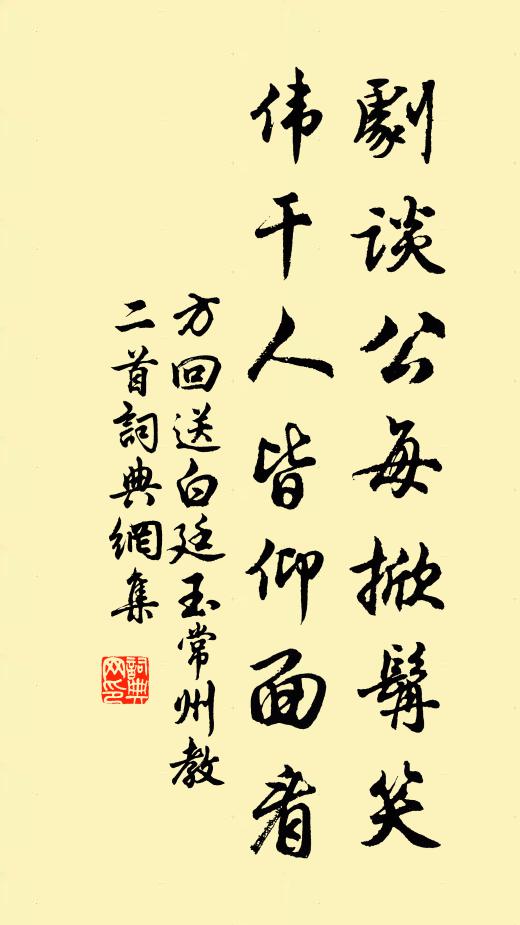 劇談公每掀髯笑
伟干人皆仰面看
方回送白廷玉常州教
二首詞典網集
詞典网印